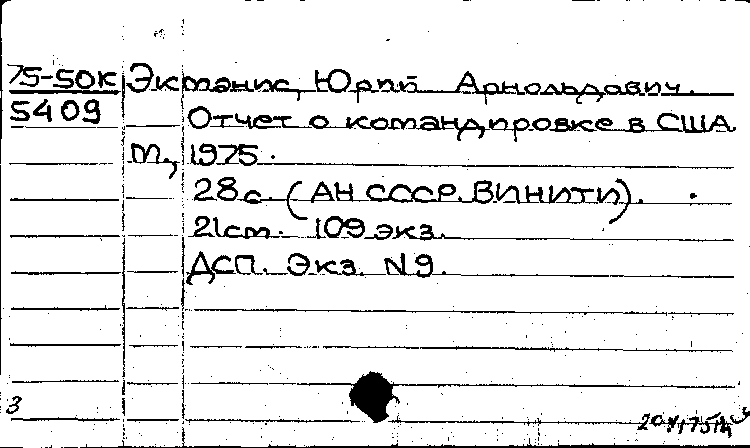 75-50К Экманис, Юрий Арнольдович.
5409 Отчет о командировке в США
М., 1975.
28 с. (АН СССР. ВИНИТИ).
21 см. 109 экз.
ДСП. Экз. N9.
3